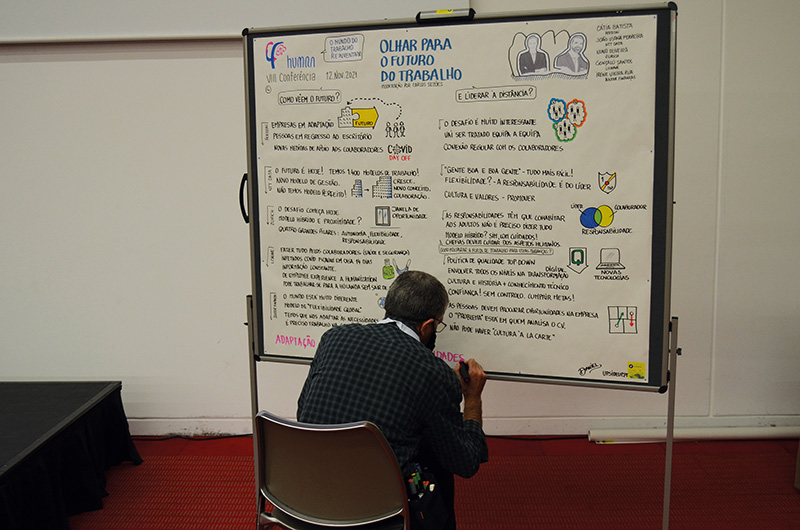 human
VIII Conferência
O MUNDO DO
TRABALHO
12.NOV.2021
OLHAR PARA
O FUTURO
DO TRABALHO
CÁTIA BATISTA
COMO VÊEM O FUTURO?
E LIDERAR À DISTÂNCIA?
FUTURO
EMPRESAS EM ADAPTAÇÃO
PESSOAS EM REGRESSO AO ESCRITÓRIO
NOVAS MEDIDAS DE APOIO AOS COLABORADORES
COVID
DAY OFF
O FUTURO É HOJE! TEMOS 1400 MODELOS DE TRABALHO!
NOVO MODELO DE GESTÃO.
NÃO TEMOS MODELO PERFEITO!
CRESCE.
NOVO CONCEITO.
COLABORAÇÃO.
O DESAFIO COMEÇA HOJE
MODELO HÍBRIDO E PROXIMIDADE?
QUATRO GRANDES PILARES: AUTONOMIA, FLEXIBILIDADE,
RESPONSABILIDADE
JANELA DE
OPORTUNIDADE
FAZER TUDO PELOS COLABORADORES (SAÚDE E SEGURANÇA)
INFETADOS COVID FICAVAM EM CASA 14 DIAS
IMPORTAÇÃO CONSTANTE.
DE EMPLOYEE EXPERIENCE A HUMANIZATION
O MUNDO ESTÁ MUITO DIFERENTE
MODELO DE "FLEXIBILIDADE GLOBAL"
TEMOS QUE NOS ADAPTAR ÀS NECESSIDADES
É PRECISO TRABALHAR
ADAPTAÇÃO
O DESAFIO É MUITO INTERESSANTE
VAI SER TRATADO EQUIPA A EQUIPA
CONEXÃO REGULAR COM OS COLABORADORES
"GENTE BOA E BOA GENTE" - TUDO MAIS FÁCIL!
FLEXIBILIDADE? - A RESPONSABILIDADE É DO LÍDER
CULTURA E VALORES - PROMOVER
LÍDER
COLABORADOR
RESPONSABILIDADE
AS RESPONSABILIDADES TÊM QUE COABITAR
AOS ADULTOS NÃO É PRECISO DIZER TUDO
MODELO HÍBRIDO? SIM, COM CUIDADOS!
CHEFIAS DEVEM CUIDAR DOS ASPETOS HUMANOS
POLÍTICA DE QUALIDADE TOP DOWN
ENVOLVER TODOS OS NÍVEIS NA TRANSFORMAÇÃO
CULTURA E HISTÓRIA + CONHECIMENTO TÉCNICO
CONFIANÇA! SEM CONTROLO. CUMPRIR METAS!
DIGITAL
NOVAS
TECNOLOGIAS
AS PESSOAS DEVEM PROCURAR OPORTUNIDADES NA EMPRESA
O "PROBLEMA" ESTÁ EM QUEM ANALISA O CV.
NÃO PODE HAVER "CULTURA À LA CARTE"